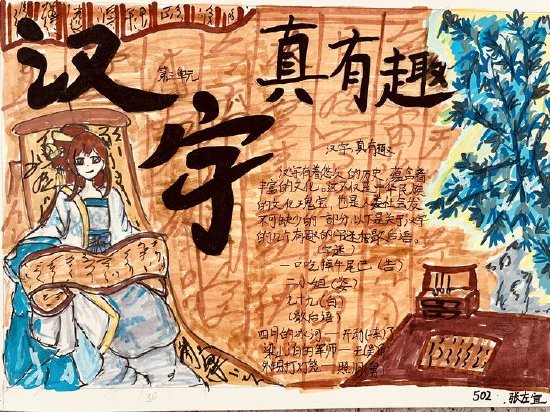 汉字
真有趣
第三单元
汉字真有趣
汉字有着悠久的历史，蕴含着
丰富的文化。这不仅是中华民族
的文化瑰宝，也是人类社会发
不可缺少的一部分，以下是关于汉字
的几个有趣的字谜和歇后语。
(字谜)
一口吃掉牛尾巴(告)
二小姐(姿)
九十九(白)
(歇后语)
四月的冰河——开动(冻)了
梁山泊的军师——无(吴)用
外甥打灯笼——照旧(舅)
502 张左宜
30